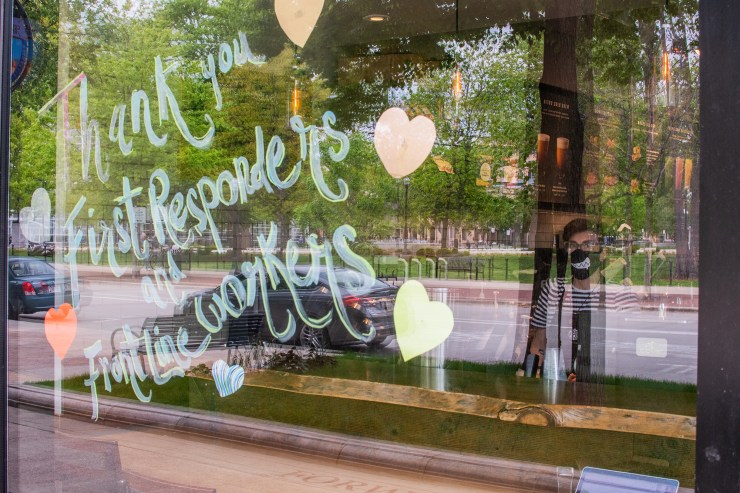 Thank you
First Responders
and
Frontline workers